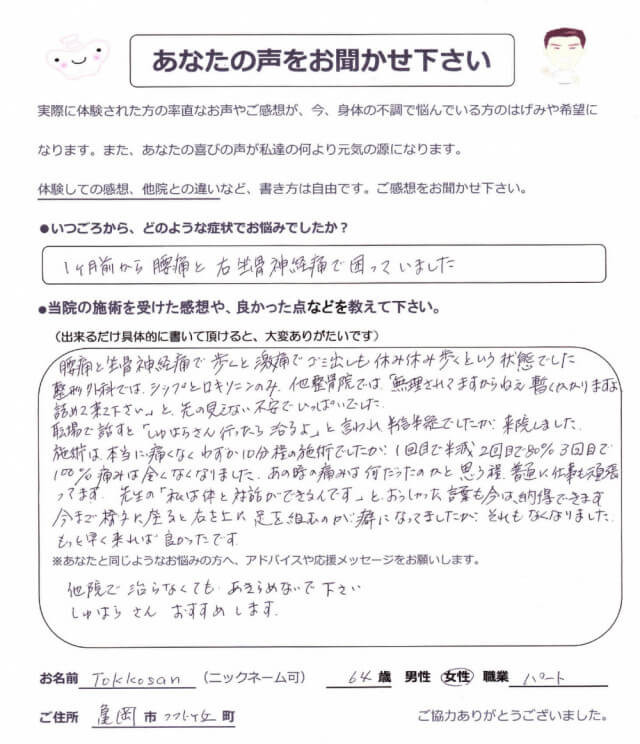 あなたの声をお聞かせ下さい
実際に体験された方の率直なお声やご感想が、今、身体の不調で悩んでいる方のはげみや希望に
なります。また、あなたの喜びの声が私達の何より元気の源になります。
体験しての感想、他院との違いなど、書き方は自由です。ご感想をお聞かせ下さい。
●いつごろから、どのような症状でお悩みでしたか？
1ヶ月前から 腰痛と 右坐骨神経痛で困っていました
●当院の施術を受けた感想や、良かった点などを教えて下さい。
（出来るだけ具体的に書いて頂けると、大変ありがたいです）
腰痛と坐骨神経痛で 歩くと 激痛でゴミ出しも 休み休み歩くという 状態でした
整形外科では、シップとロキソニンのみ、他整骨院では、「無理されてますからねえ 暫くかかりますよ
詰めて来て下さい。」と、先の見えない不安でいっぱいでした。
職場で 話すと「しゅはらさん行ったら 治るよ」と言われ 半信半疑でしたが 来院しました。
施術は、本当に痛くなくわずか10分程の施術でしたが、1回目で半減 2回目で80% 3回目で
100% 痛みは全くなくなりました。あの時の痛みは何だったのかと思う程、普通に仕事も頑張
ってます。先生の「私は体と対話ができるんです」と、おっしゃった言葉も今は納得できます
今まで椅子に座ると右を上に 足を組むのが癖になってましたが、それもなくなりました。
もっと早く来れば良かったです
※あなたと同じようなお悩みの方へ、アドバイスや応援メッセージをお願いします。
他院で 治らなくても、あきらめないで 下さい
しゅはらさん おすすめします。
お名前 Tokkosan （ニックネーム可） 64 歳 男性 女性 職業 パート
ご住所 亀岡 市 つつじヶ丘 町 ご協力ありがとうございました。